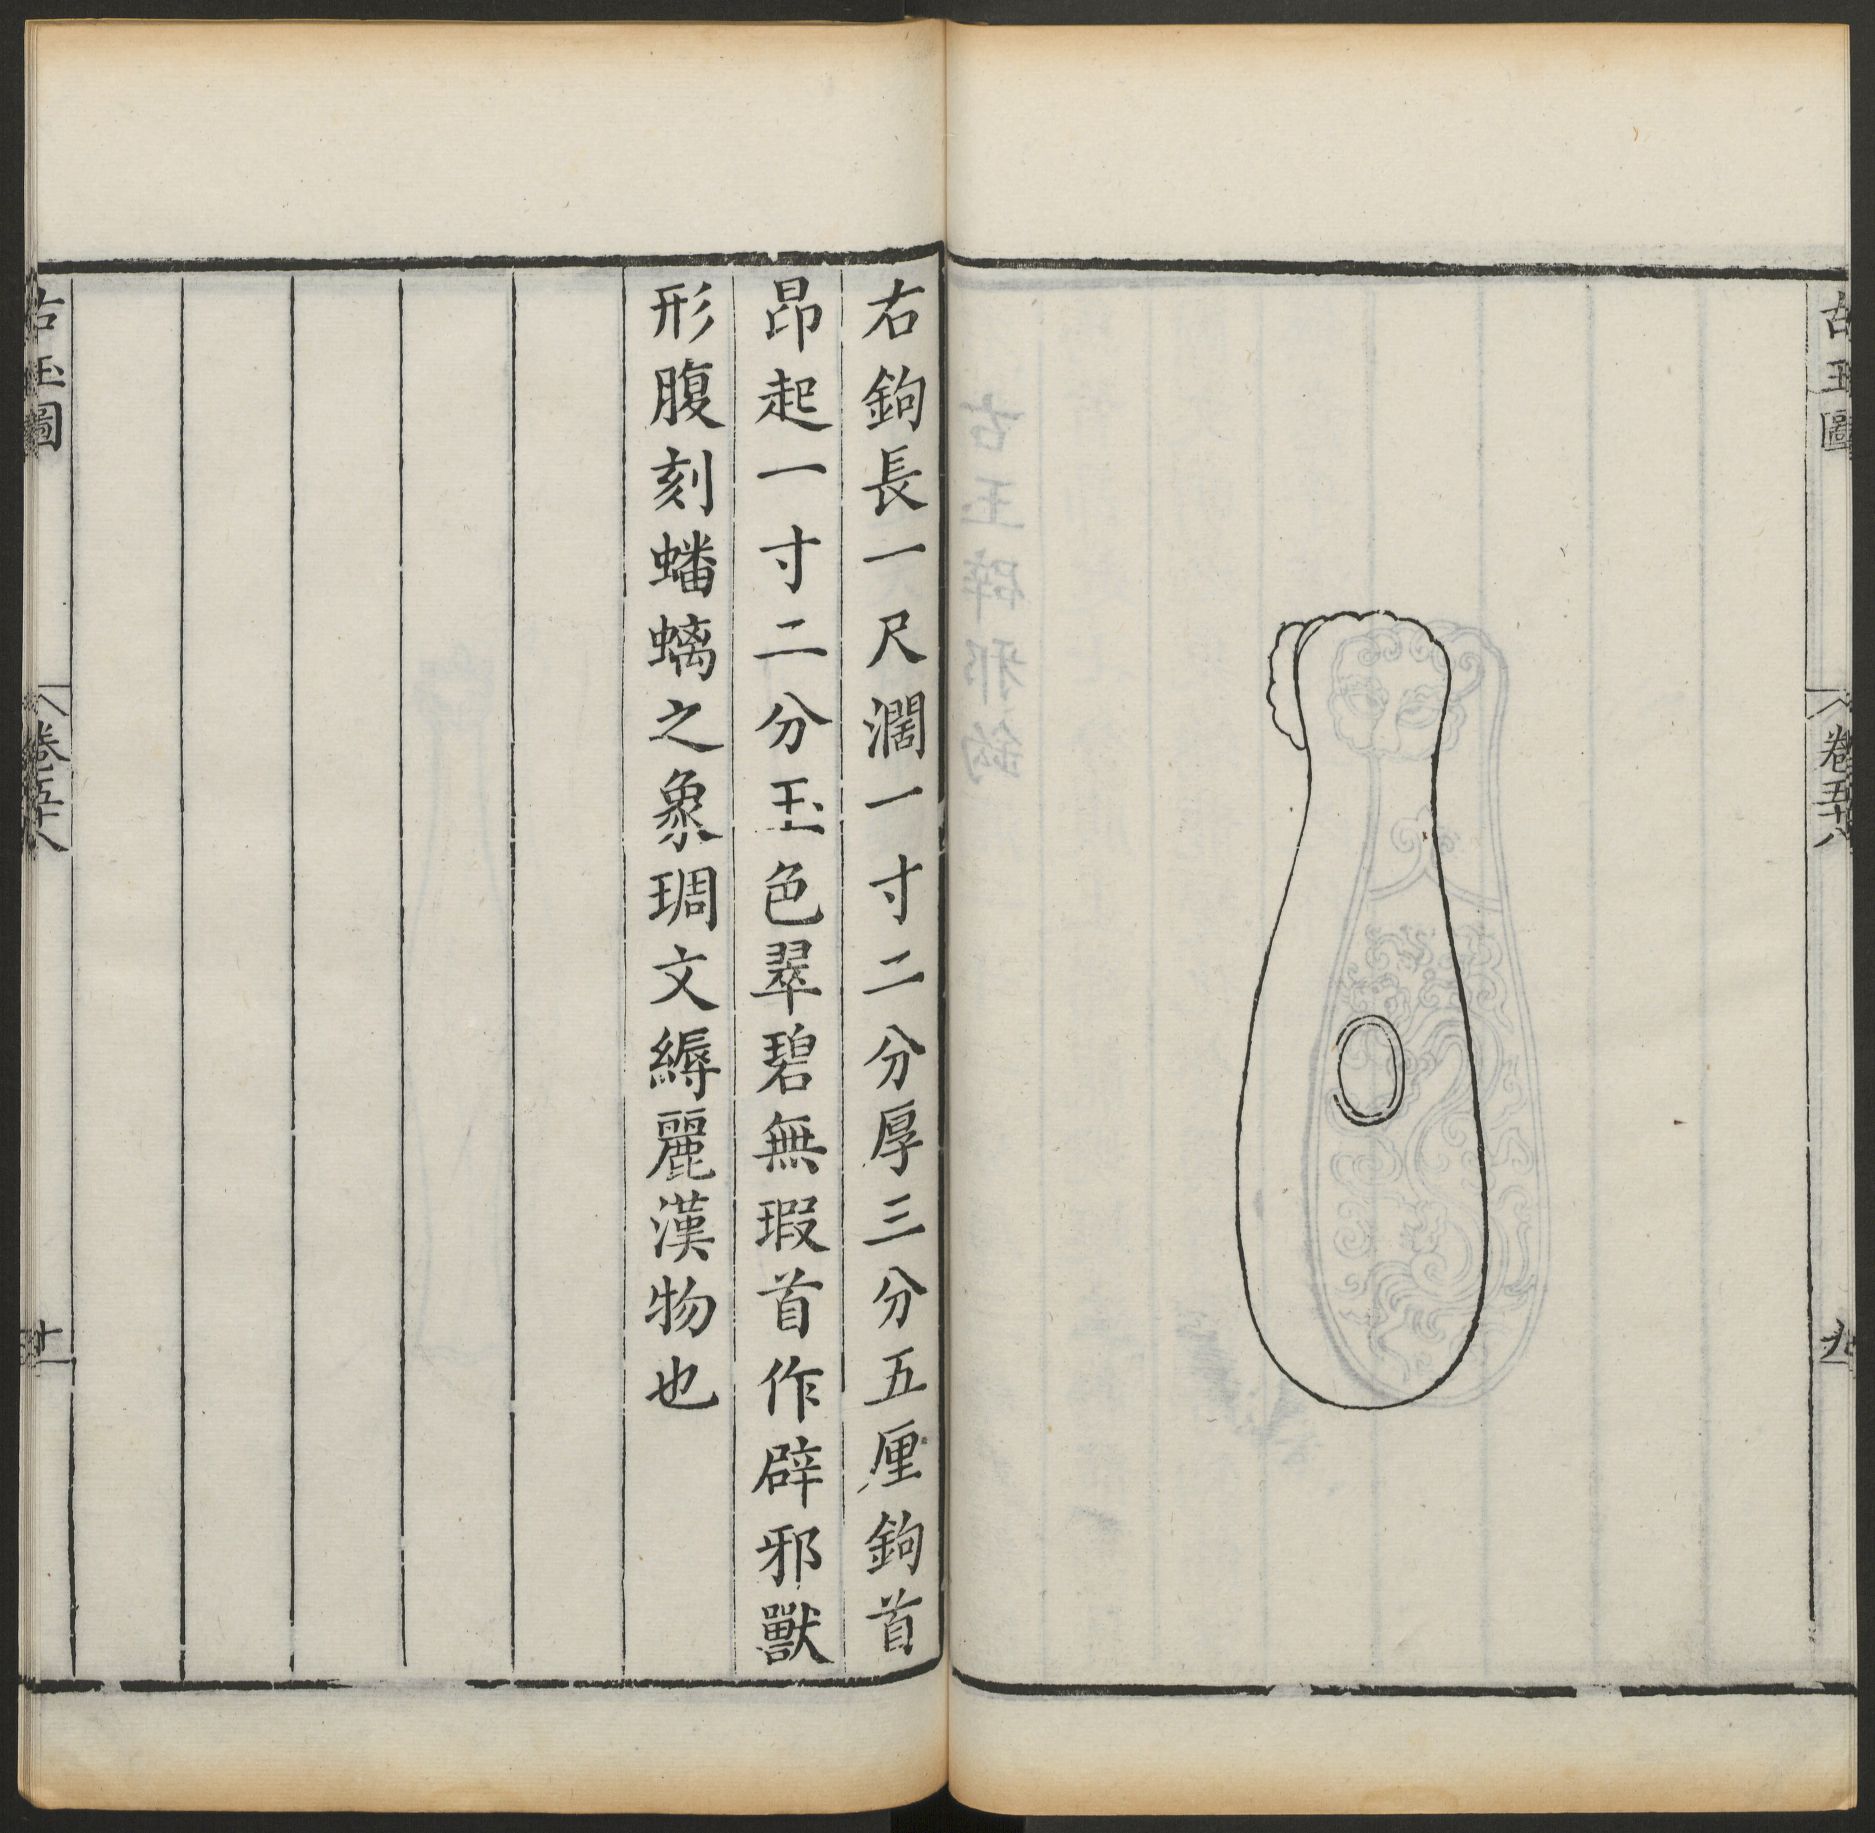 古玉圖
卷五十八
九
右鉤長一尺濶一寸二分厚三分五厘鉤首
昂起一寸二分玉色翠碧無瑕首作辟邪獸
形腹刻蟠螭之象琱文縟麗漢物也
古玉圖
卷五十八